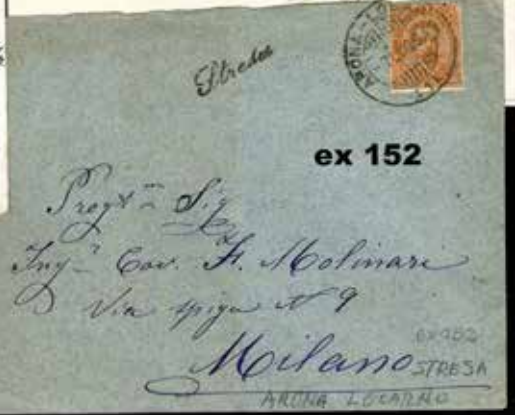 Stresa
ARONA
ex 152
Preg.mo Sig.
Ing.re Cav. F. Molinari
Via Spiga N 9
Milano
ex 152
STRESA
ARONA LOCARNO